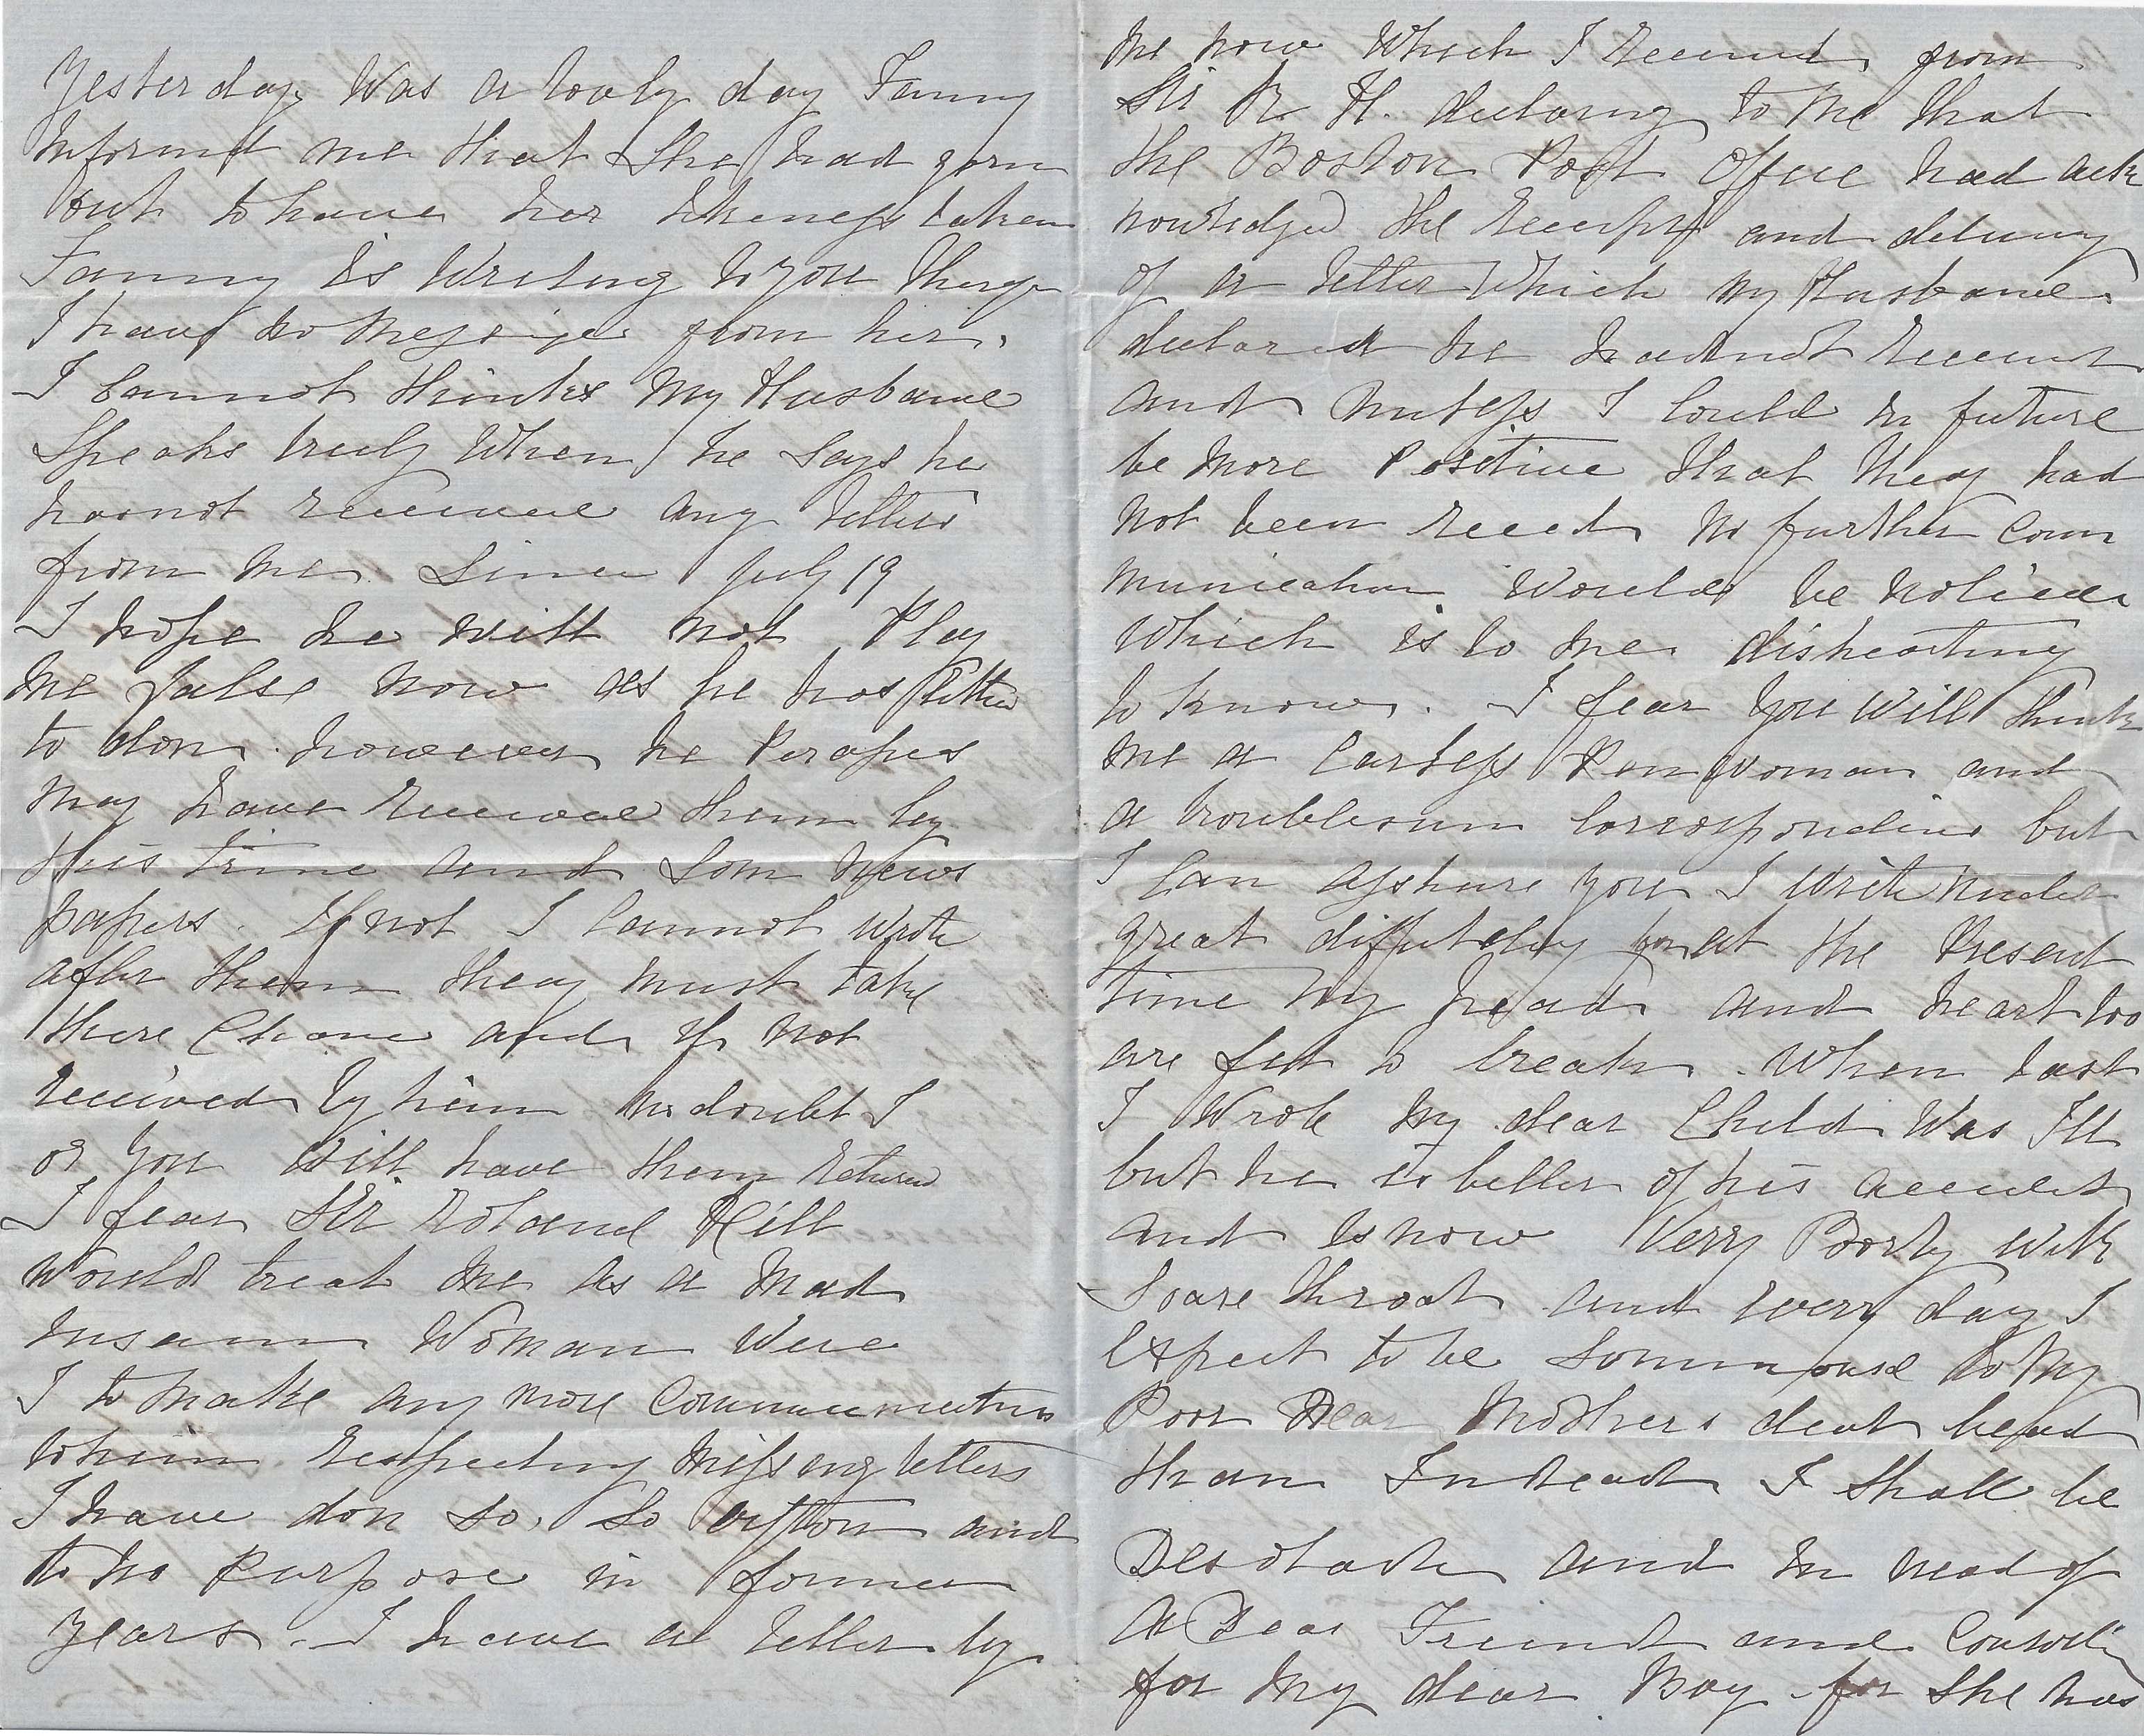 Yesterday Was a lovly day Fanny
informed me that She had gorn
out to have her likeness taken
Fanny is Writing to you
I have no messiges from her.
I Cannot think My Husband
Speaks truly When he Says he
has not received any letters
from me Since July 19
I hope he will not Play
me false now as he has
to don. however he Perapes
may have received them by
this time and Som News
papers. If not I Cannot Write
after them theay must take
there Chance and if not
received by him no doubt I
or you Will have them return
I fear Sir Roland Hill
Would treat me as a Mad
insane Woman Were
I to make any more Communication
to him respecting missing letters
I have don so, So oifton and
to no Purpose in former
years. I have a letter by
me now Which I received from
Sir R. H. declaring to me that
the Boston Post Office had ack
nowledged the receipt and delivery
of a letter Which my Husband
declared he had not received
and unless I Could in future
be more Positive that they had
not been received no further Com
munication Would be noticed
Which is to me disheartning
to know. I fear you Will think
me a Carless Pen Woman and
a troublesum Corresponding but
I Can asshure you I Write under
great diffulty for at the Present
time my head and heart too
are fit to break. When last
I Wrote my dear Child Was Ill
but he is better of his accident
and is now Verry Poorly With
Soare throat and every day I
expect to be Sommonsed to My
Poor Dear Mothers deat bead
than Indead I Shall be
Desolate and in nead of
a Dear Friend and
for My dear Boy for She has